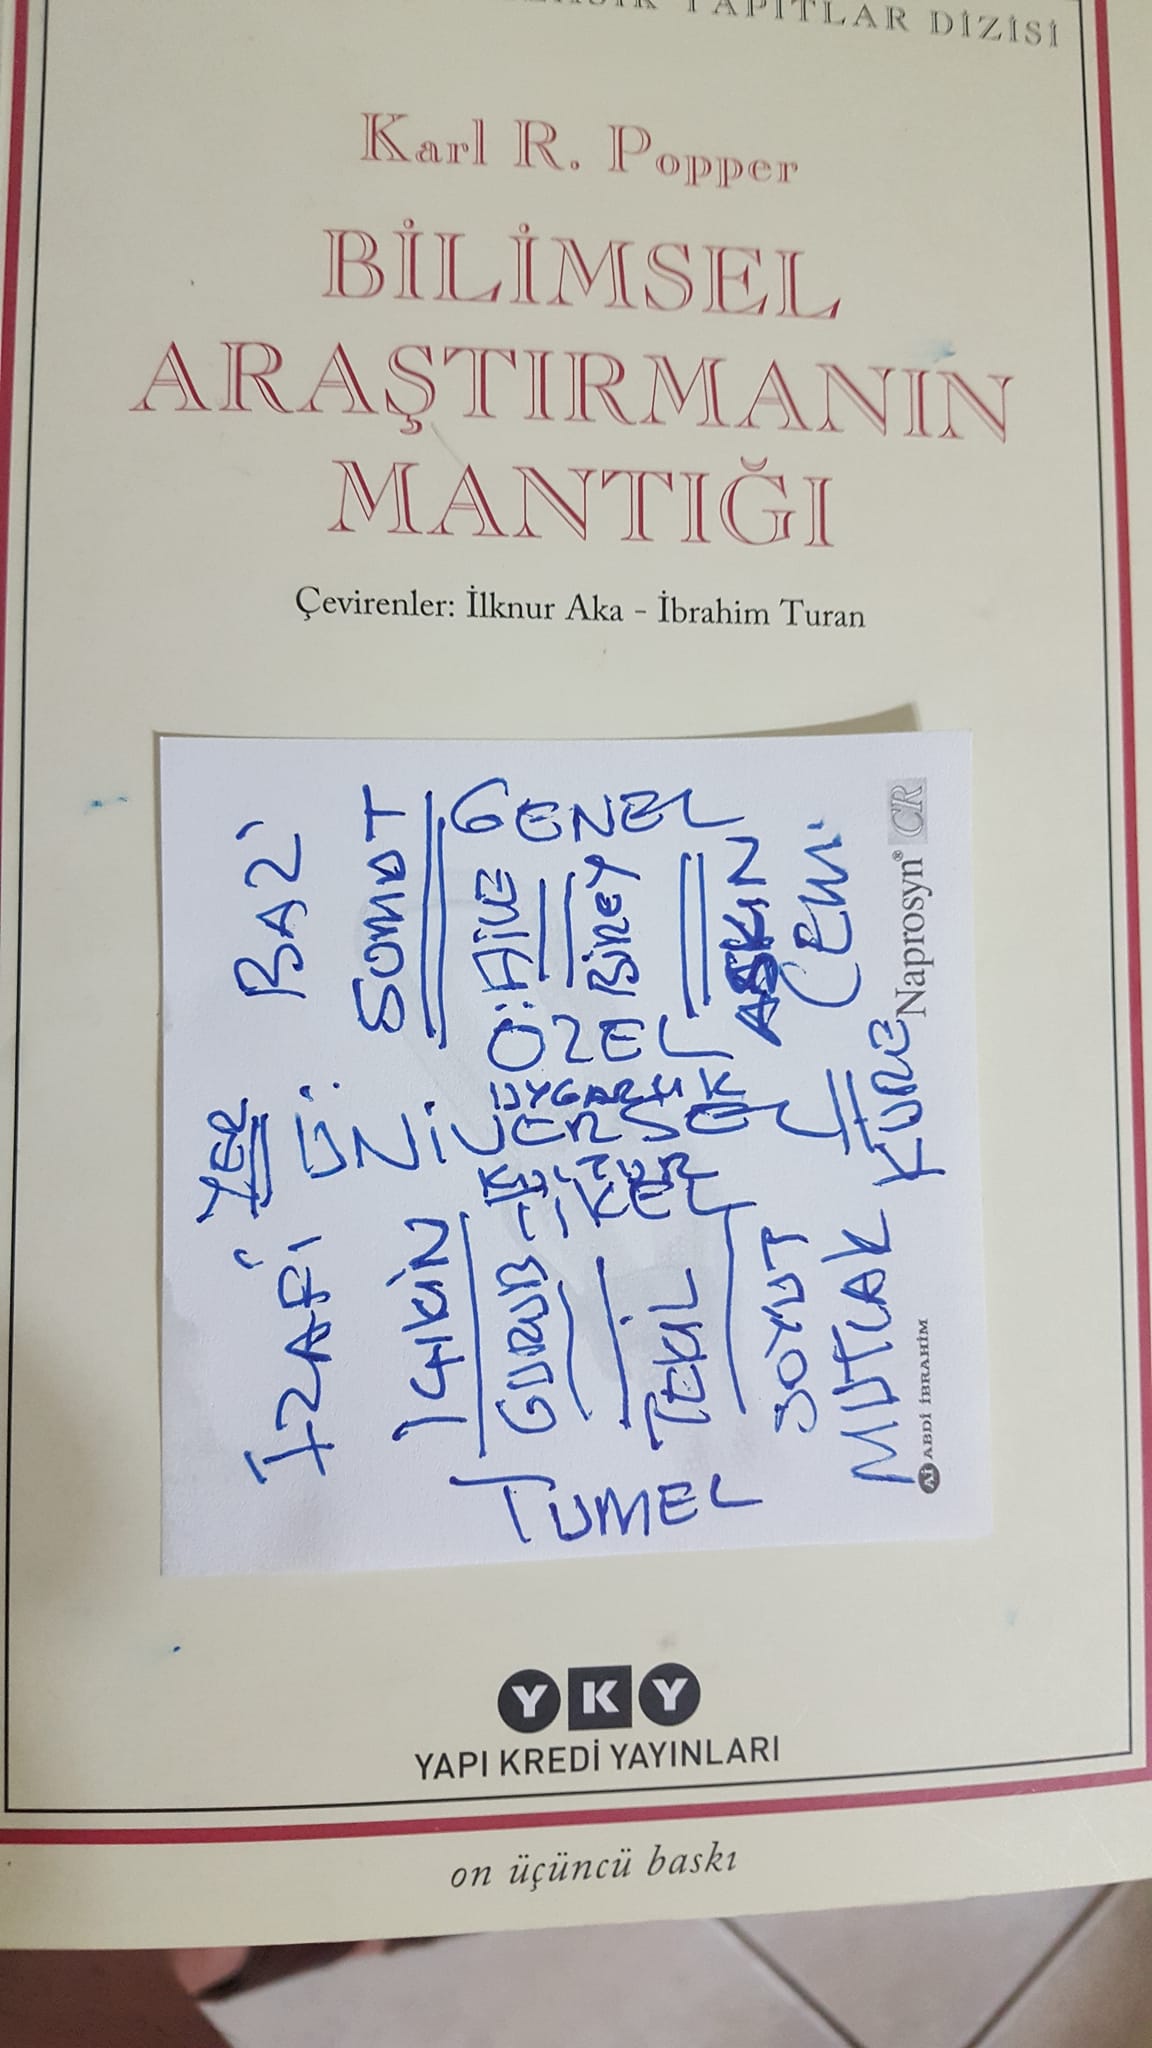 YAPITLAR DİZİSİ
Karl R. Popper
BİLİMSEL
ARAŞTIRMANIN
MANTIĞI
Çevirenler: İlknur Aka - İbrahim Turan
BAZİ
SOMUT
GENEL
AİLE
BİREY
AŞKIN
Naprosyn® CR
ÖZEL
YER
UYGARLIK
ÜNİVERSEL
KÜLTÜR
TİKEL
İZAFİ
İÇKİN
GURUB
TEKİL
SOYUT
MUTLAK KÜRE
TUMEL
Ai ABDİ İBRAHİM
YKY
YAPI KREDİ YAYINLARI
on üçüncü baskı